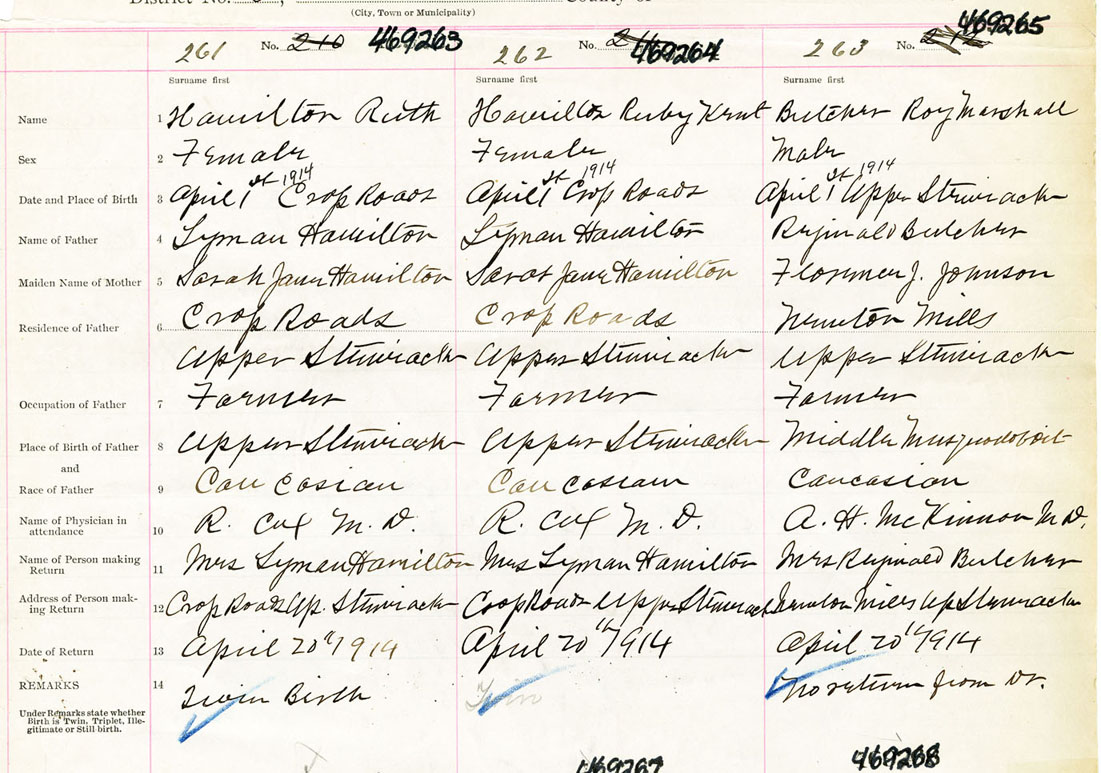 District No. County of
(City, Town or Municipality)
261 No. 210 469263
262 No. 469264
263 No. 469265
Surname first Surname first Surname first
Name 1 Hamilton Ruth Hamilton Ruby Kent Butcher Roy Marshall
Sex 2 Female Female Male
Date and Place of Birth 3 April 1st 1914 Crop Roads April 1st 1914 Crop Roads April 1st 1914 Upper Stewiacke
Name of Father 4 Lyman Hamilton Lyman Hamilton Reginald Butcher
Maiden Name of Mother 5 Sarah Jane Hamilton Sarah Jane Hamilton Florence J. Johnson
Residence of Father 6 Crop Roads Crop Roads Newton Mills
Upper Stewiacke Upper Stewiacke Upper Stewiacke
Occupation of Father 7 Farmer Farmer Farmer
Place of Birth of Father 8 Upper Stewiacke Upper Stewiacke Middle Musquodoboit
and
Race of Father 9 Caucasian Caucasian Caucasian
Name of Physician in
attendance 10 R. Cox M. D. R. Cox M. D. A. H. McKinnon M D.
Name of Person making
Return 11 Mrs Lyman Hamilton Mrs Lyman Hamilton Mrs Reginald Butcher
Address of Person mak-
ing Return 12 Crop Roads Up. Stewiacke Crop Roads Upper Stewiacke Newton Mills Up Stewiacke
Date of Return 13 April 20th 1914 April 20th 1914 April 20th 1914
REMARKS 14 Twin Birth Twin No return from Dr.
Under Remarks state whether
Birth is Twin, Triplet, Ille-
gitimate or Still-birth.
469267 469268